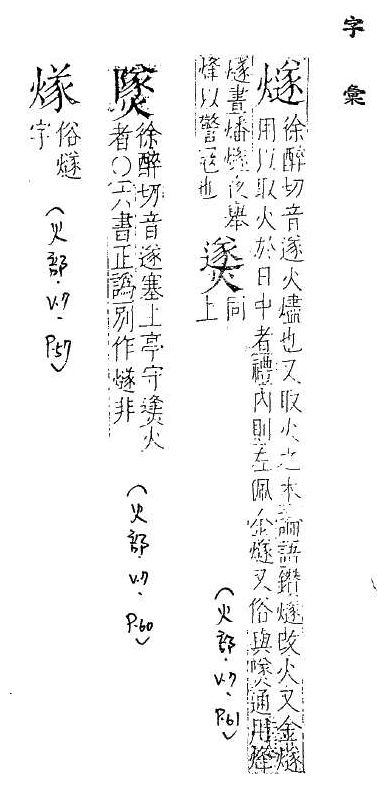 字彙
燧
徐醉切音遂火燼也又取火之木論語鑽燧改火又金燧
用以取火於日中者禮內則左佩金燧又俗與通用烽
燧晝燔燧夜舉
烽以警寇也
同
上
(火部.V.7.P.61)
徐醉切音遂塞上亭守㷭火
者○六書正譌別作燧非
(火部.V.7.P.60)
俗燧
字
(火部.V.7.P.57)